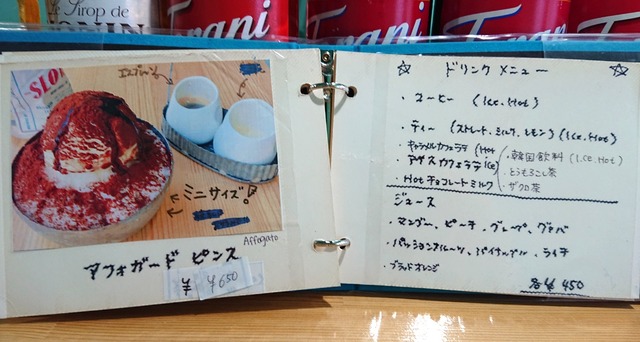 Le Sirop de
MONIN
Torani
Torani
Torani
Torani
SLO
エスプレッソ
ミニサイズ!
Affogato
アフォガード ピンス
¥ ¥650
☆ ドリンク メニュー ☆
・コーヒー (Ice. Hot)
・ティー (ストレート. ミルク. レモン) (Ice. Hot)
・キャラメルカフェラテ (Hot
・アイスカフェラテ ice)
・Hot チョコレートミルク
・韓国飲料 (Ice. Hot)
・とうもろこし茶
・ザクロ茶
ジュース
・マンゴー, ピーチ, グレープ, グァバ
・パッションフルーツ, パイナップル, ライチ
・ブラッドオレンジ
各¥ 450